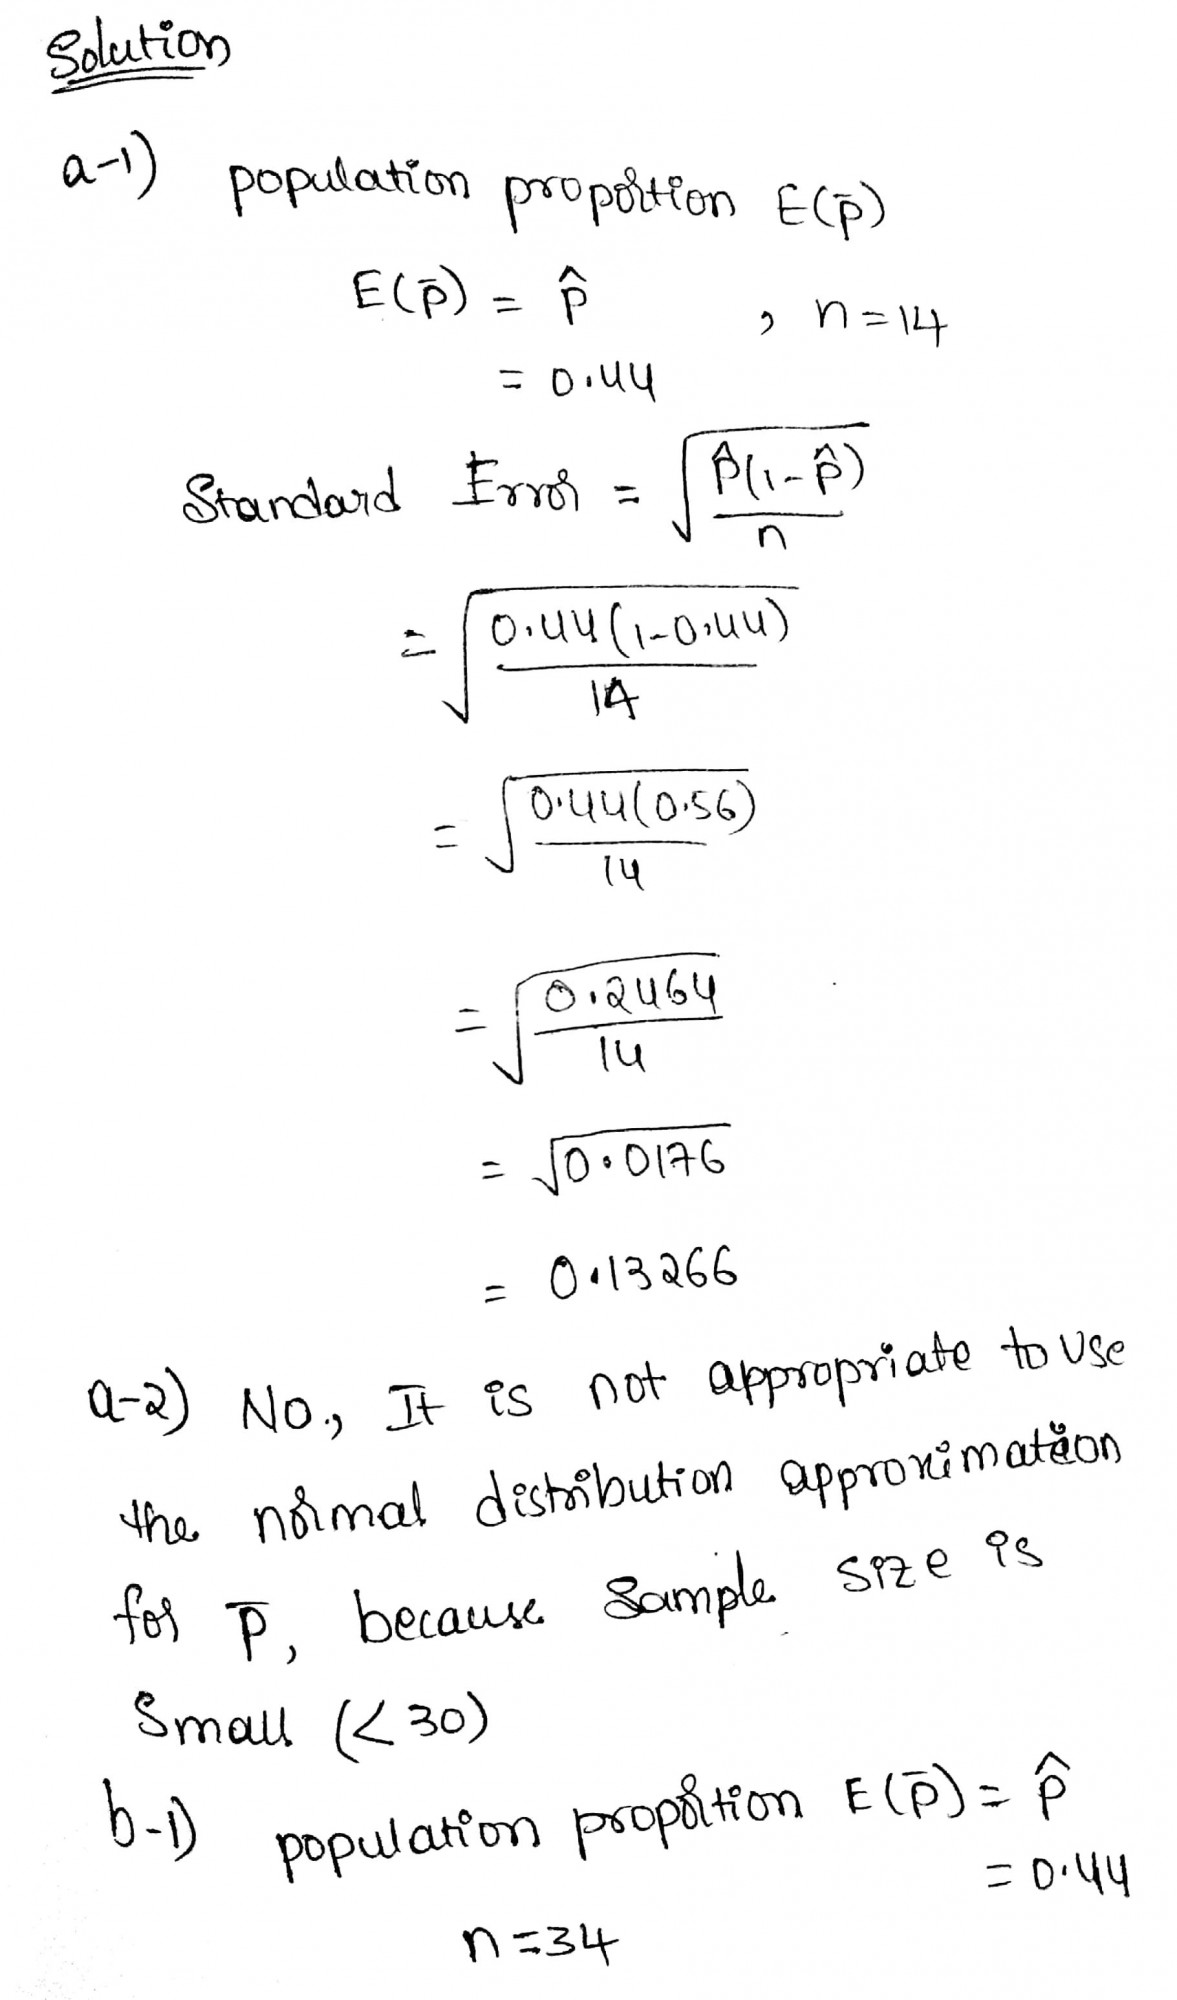 Solution
a-1) population proportion E(p̄)
E(p̄) = p̂ , n=14
= 0.44
Standard Error = √(p̂(1-p̂)/n)
= √(0.44(1-0.44)/14)
= √(0.44(0.56)/14)
= √(0.2464/14)
= √0.0176
= 0.13266
a-2) No., It is not appropriate to use
the normal distribution approximation
for p̄, because sample size is
Small (<30)
b-1) population proportion E(p̄) = p̂
= 0.44
n=34